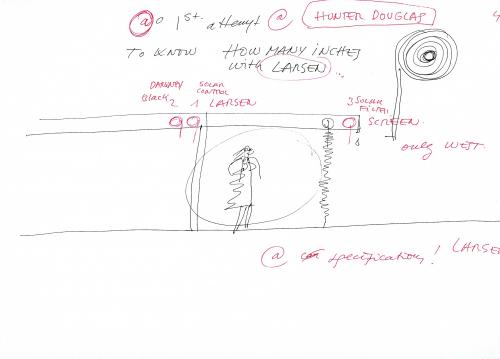 @ 1st. attempt @ HUNTER DOUGLAS
TO KNOW HOW MANY iNCHES
with LARSEN ...
SOLAR
CONTROL
Black 2 1 LARSEN
3 SOLAR
SCREEN.
only WEST.
@ specifications! LARSEN